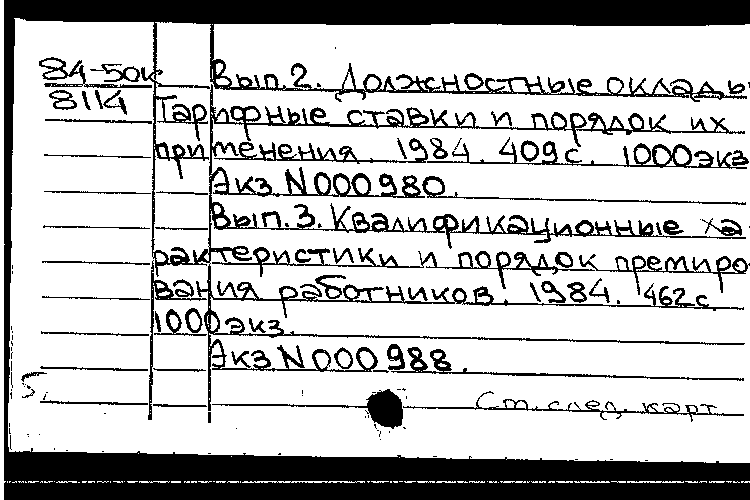 84-50к Вып.2. Должностные оклады
8114 Тарифные ставки и порядок их
применения. 1984. 409с. 1000экз
Экз N000980.
Вып.3. Квалификационные ха-
рактеристики и порядок премиро
вания работников. 1984. 462с.
1000экз.
Экз N000988.
5.
См. след. карт